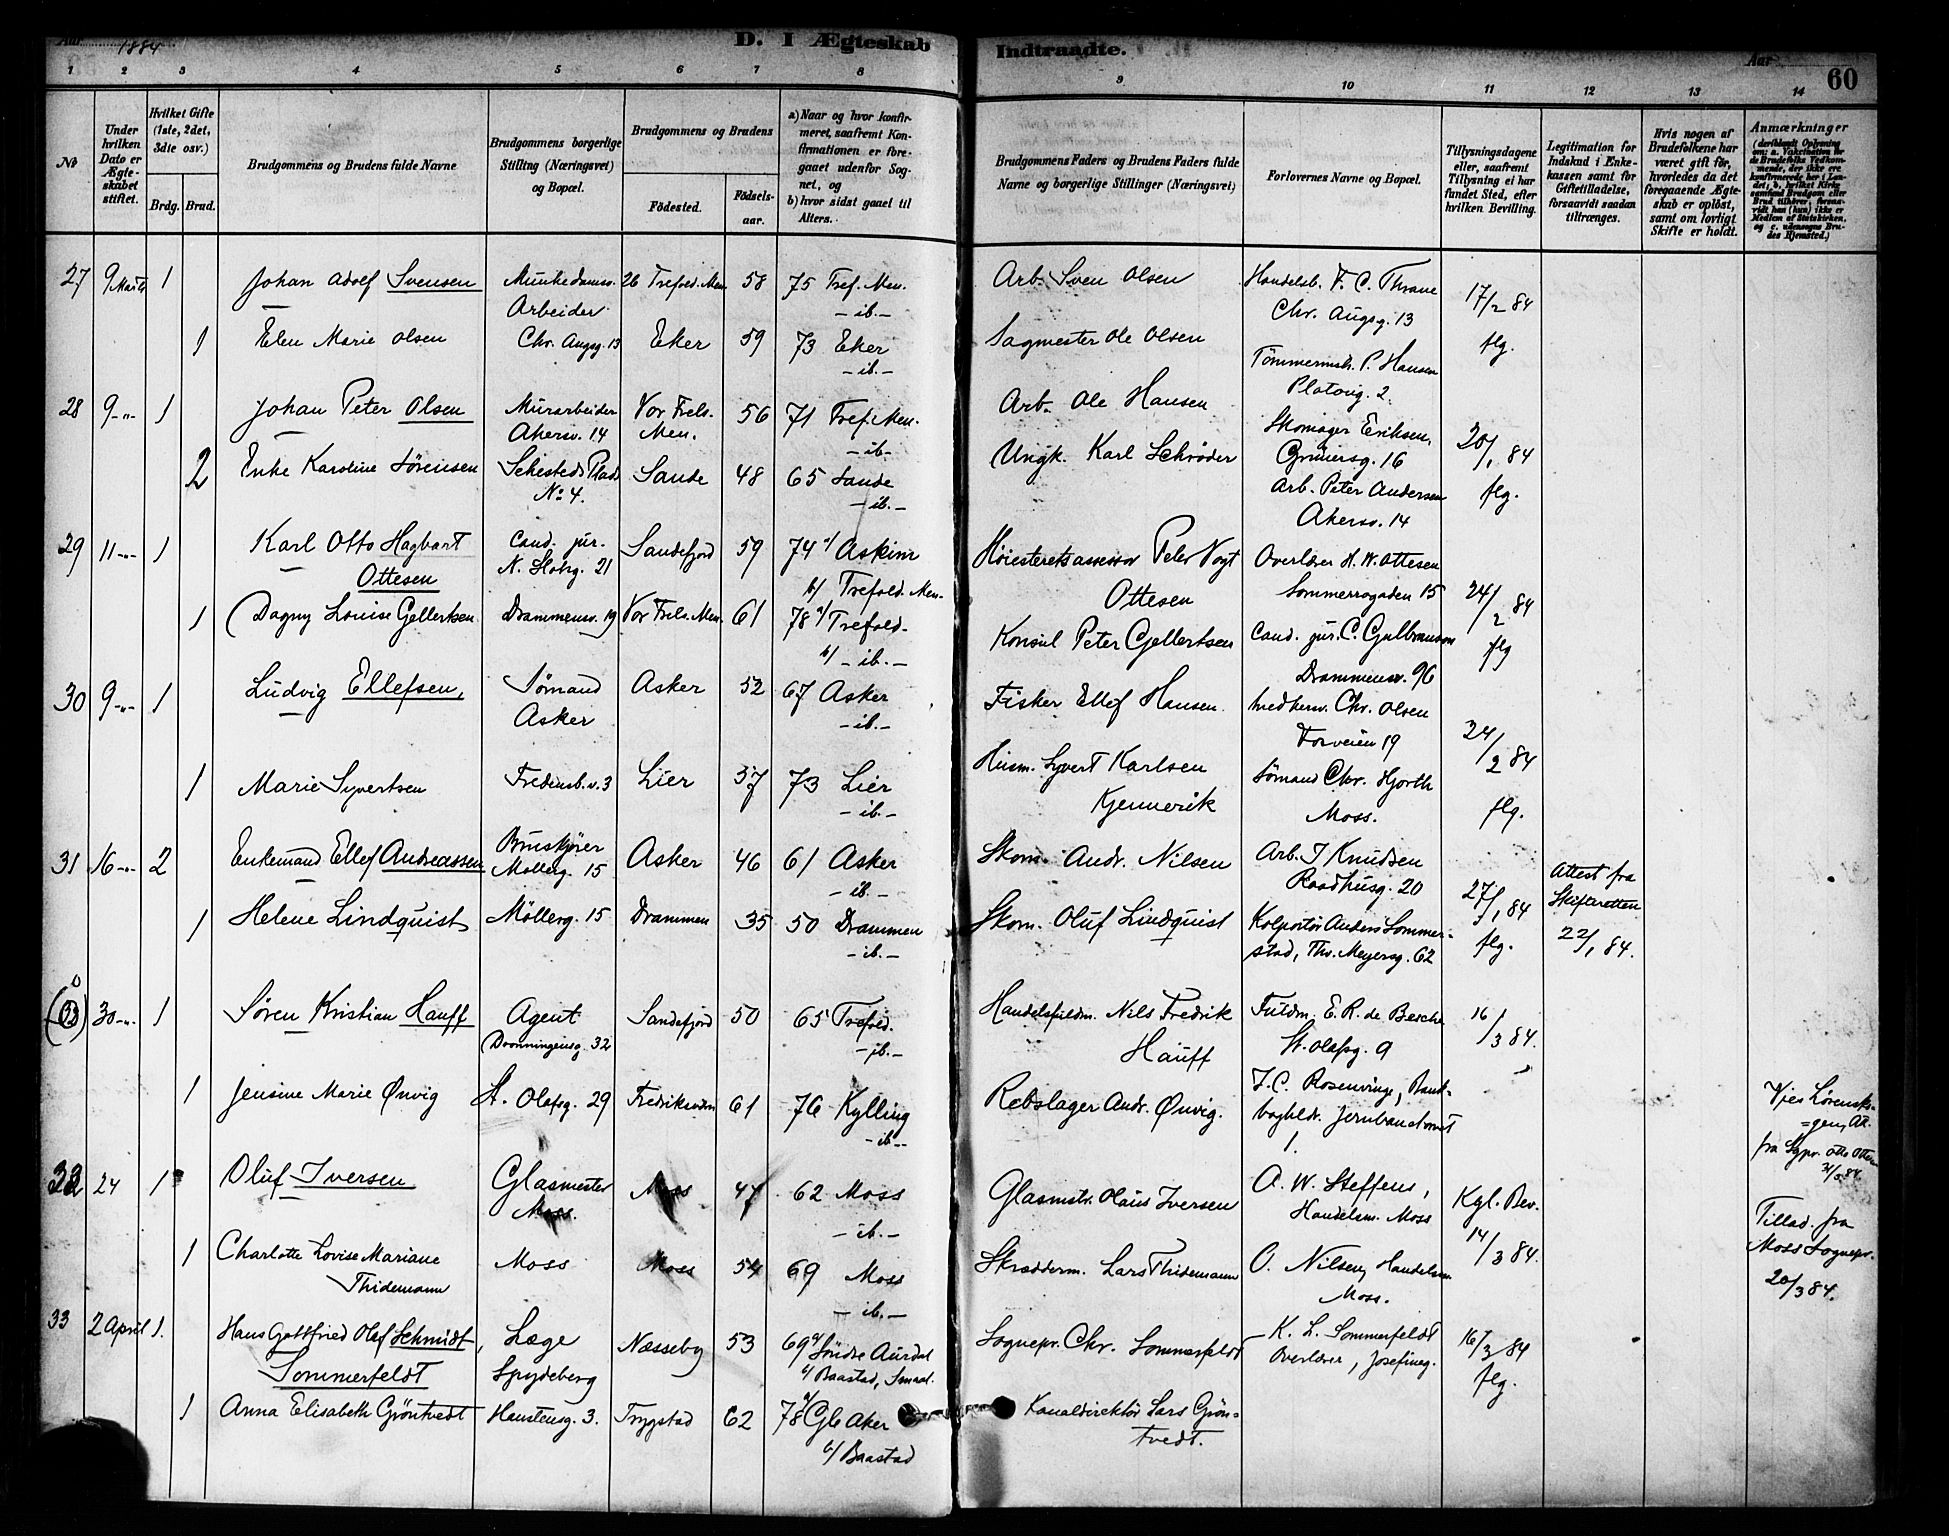 Aar 1884
D. I Ægteskab
Indtraadte.
Aar
60
1 2 3 4 5 6 7 8 9 10 11 12 13 14
No
Under hvilken Dato er Ægteskabet stiftet.
Hvilket Gifte (1ste, 2det, 3die osv.)
Brdg. Brud.
Brudgommens og Brudens fulde Navne
Brudgommens borgerlige Stilling (Næringsvei) og Bopæl.
Brudgommens og Brudens
Fødested.
Fødselsaar.
a) Naar og hvor konfirmeret, saafremt Konfirmationen er foregaaet udenfor Sognet, og
b) hvor sidst gaaet til Alters.
Brudgommens Faders og Brudens Faders fulde Navne og borgerlige Stillinger (Næringsvei)
Forlovernes Navne og Bopæl.
Tillysningsdagene eller, saafremt Tillysning ei har fundet Sted, efter hvilken Bevilling.
Legitimation for Indskud i Enkekassen samt for Giftetilladelse, forsaavidt saadan tiltrænges.
Hvis nogen af Brudefolkene har været gift før, hvorledes da det foregaaende Ægteskab er opløst, samt om lovligt Skifte er holdt.
Anmærkninger
27 9 Marts 1 Johan Adolf Svensen Munkedamsv. 26 Trefold. Men. 58 75 Tref. Men. Arb. Sven Olsen Handelsb. F. C. Thrane 17/2 84
Arbeider -ib.- Chr. Augsg. 13
1 Elen Marie Olsen Chr. Augsg. 13 Eker 59 73 Eker Sagmester Ole Olsen Tømmermstr. P. Hansen flg.
-ib.- Platoug. 2.
28 9 -"- 1 Johan Peter Olsen Murarbeider Vor Frels. 56 71 Tref. Men. Arb. Ole Hansen Skomager Eriksen, 20/1 84
Akersv. 14 Men. -ib- Grünersg. 16
2 Enke Karoline Sörensen Sehesteds Plads Sande 48 65 Sande Ungk. Karl Schröder Arb. Peter Andersen flg.
No 4. -ib.- Akersv. 14
29 11 -"- 1 Karl Otto Hagbart Cand. jur. Sandefjord 59 74 a/ Askim Høiesteretsassessor Peter Vogt Overlærer H. W. Ottesen 24/2 84
Ottesen N. Slotsg. 21 b/ Trefold. Men. Ottesen Sommerrogaden 15
1 Dagny Louise Gellertsen Drammensv. 19 Vor Frels. Men. 61 78 a/ Trefold. Konsul Peter Gellertsen Cand. jur. C. Gulbranson flg
b/ -ib.- Drammensv. 96
30 9 -"- 1 Ludvig Ellefsen, Sømand Asker 52 67 Asker Fisker Ellef Hansen Vedherv. Chr. Olsen 24/2 84
Asker -ib.- Torveien 19
1 Marie Syvertsen Fredensb.v. 3 Lier 57 73 Lier Husm. Syvert Karlsen Sømand Chr. Hjorth flg.
-ib.- Kjennerik Moss.
31 16 -"- 2 Enkemand Ellef Andreassen Bruskjører Asker 46 61 Asker Skom. Andr. Nilsen Arb. J Knudsen 27/1 84 Attest fra
Møllerg. 15 -ib.- Raadhusg. 20 Skifteretten
1 Helene Lindquist Möllerg. 15 Drammen 35 50 Drammen Skom. Oluf Lindquist Kolportör Anders Sommer- flg. 22/1 84.
-ib.- stad, Thv. Meyersg. 62
30 -"- 1 Søren Kristian Hauff Agent Sandefjord 50 65 Trefold. Handelsfuldm. Nils Fredrik Fuldm. E. R. de Besche 16/3 84.
Dronningensg. 32 -ib.- Hauff St. Olafsg. 9
1 Jensine Marie Ønvig St. Olafsg. 29 61 76 Kylling Rebslager Andr. Ønvig. J. C. Rosenvinge, Bank-
-ib.- bogholdr. Jernbanetorvet 1.
fra Sgpr. Otto 31/3 84
32 24 1 Oluf Iversen Glasmester Moss 47 62 Moss Glasmstr. Olaus Iversen A. W. Steffens, Kgl. Bev. Tillad. fra
Moss. -ib.- Handelsm. Moss 14/3 84. Moss Sognepr.
1 Charlotte Lovise Mariane Moss Moss 54 69 Moss Skrædderm. Lars Thidemann O. Nilsen, Handelsm 20/3 84.
Thidemann -ib.- Moss.
33 2 April 1. Hans Gottfried Olaf Schmidt, Læge Næsseby 53 69 a/ Søndre Aurdal Sognepr. Chr. Sommerfeldt K. L. Sommerfeldt 16/3 84
Sommerfeldt Spydeberg b/ Baastad, Smaal. Overlærer, Josefineg. flg.
1 Anna Elisabeth Gröntvedt Haustensg. 3. Trygstad 62 78 a/ Gle Aker Kanaldirektör Lars Grön-
b/ Baastad tvedt.